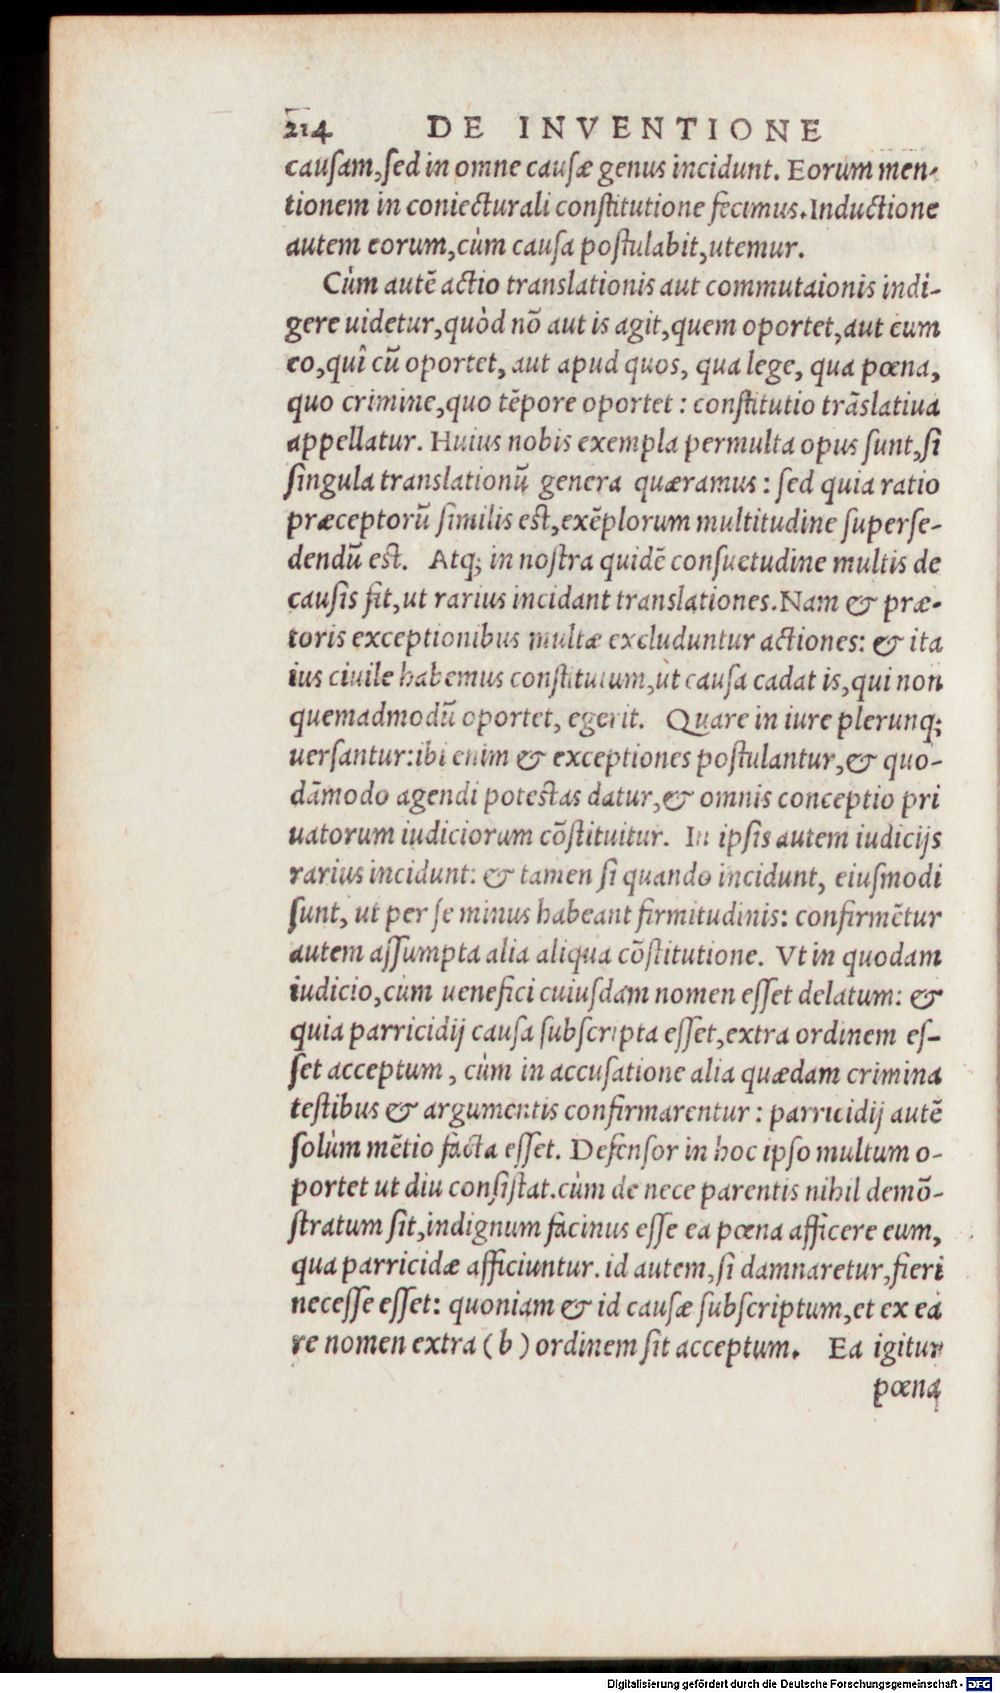 214 DE INVENTIONE
causam, sed in omne causæ genus incidunt. Eorum men-
tionem in coniecturali constitutione fecimus. Inductione
autem eorum, cùm causa postulabit, utemur.
Cùm autẽ actio translationis aut commutaionis indi-
gere uidetur, quòd nõ aut is agit, quem oportet, aut cum
eo, quî cũ oportet, aut apud quos, qua lege, qua pœna,
quo crimine, quo tẽpore oportet: constitutio trãslatiua
appellatur. Huius nobis exempla permulta opus sunt, si
singula translationũ genera quæramus: sed quia ratio
præceptorũ similis est, exẽplorum multitudine superse-
dendũ est. Atq; in nostra quidẽ consuetudine multis de
causis fit, ut rarius incidant translationes. Nam & præ-
toris exceptionibus multæ excluduntur actiones: & ita
ius ciuile habemus constitutum, ut causa cadat is, qui non
quemadmodũ oportet, egerit. Quare in iure plerunq;
uersantur: ibi enim & exceptiones postulantur, & quo-
dãmodo agendi potestas datur, & omnis conceptio pri
uatorum iudiciorum cõstituitur. In ipsis autem iudicijs
rarius incidunt: & tamen si quando incidunt, eiusmodi
sunt, ut per se minus habeant firmitudinis: confirmẽtur
autem assumpta alia aliqua cõstitutione. Vt in quodam
iudicio, cùm uenefici cuiusdam nomen esset delatum: &
quia parricidij causa subscripta esset, extra ordinem es-
set acceptum, cùm in accusatione alia quædam crimina
testibus & argumentis confirmarentur: parricidij autẽ
solùm mẽtio facta esset. Defensor in hoc ipso multum o-
portet ut diu consistat. cùm de nece parentis nihil demõ-
stratum sit, indignum facinus esse ea pœna afficere eum,
qua parricidæ afficiuntur. id autem, si damnaretur, fieri
necesse esset: quoniam & id causæ subscriptum, et ex ea
re nomen extra (b) ordinem sit acceptum. Ea igitur
pœna
Digitalisierung gefördert durch die Deutsche Forschungsgemeinschaft - DFG